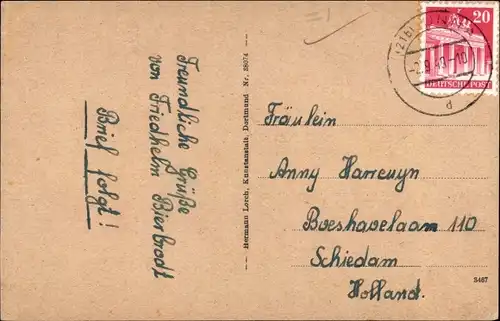 Freundliche Grüße
von Friedhelm Bierbrodt
Brief folgt!
Hermann Lorch, Kunstanstalt, Dortmund Nr. 38074
20
DEUTSCHE POST
-2.9.48-10
d
Fräulein
Anny Harreuyn
Boeshavelaan 110
Schiedam
Holland.
5467